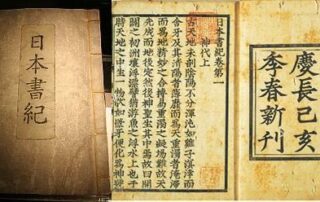 慶長己亥
季春新刊
日本書紀卷第一
神代上
古天地未剖陰陽不分渾沌如雞子溟涬而
含牙及其清陽者薄靡而爲天重濁者淹滯
而爲地精妙之合摶易重濁之凝竭難故天
先成而地後定然後神聖生其中焉故曰開
闢之初洲壤浮漂譬猶游魚之浮水上也于
時天地之中生一物狀如葦牙便化爲神號
日本書紀